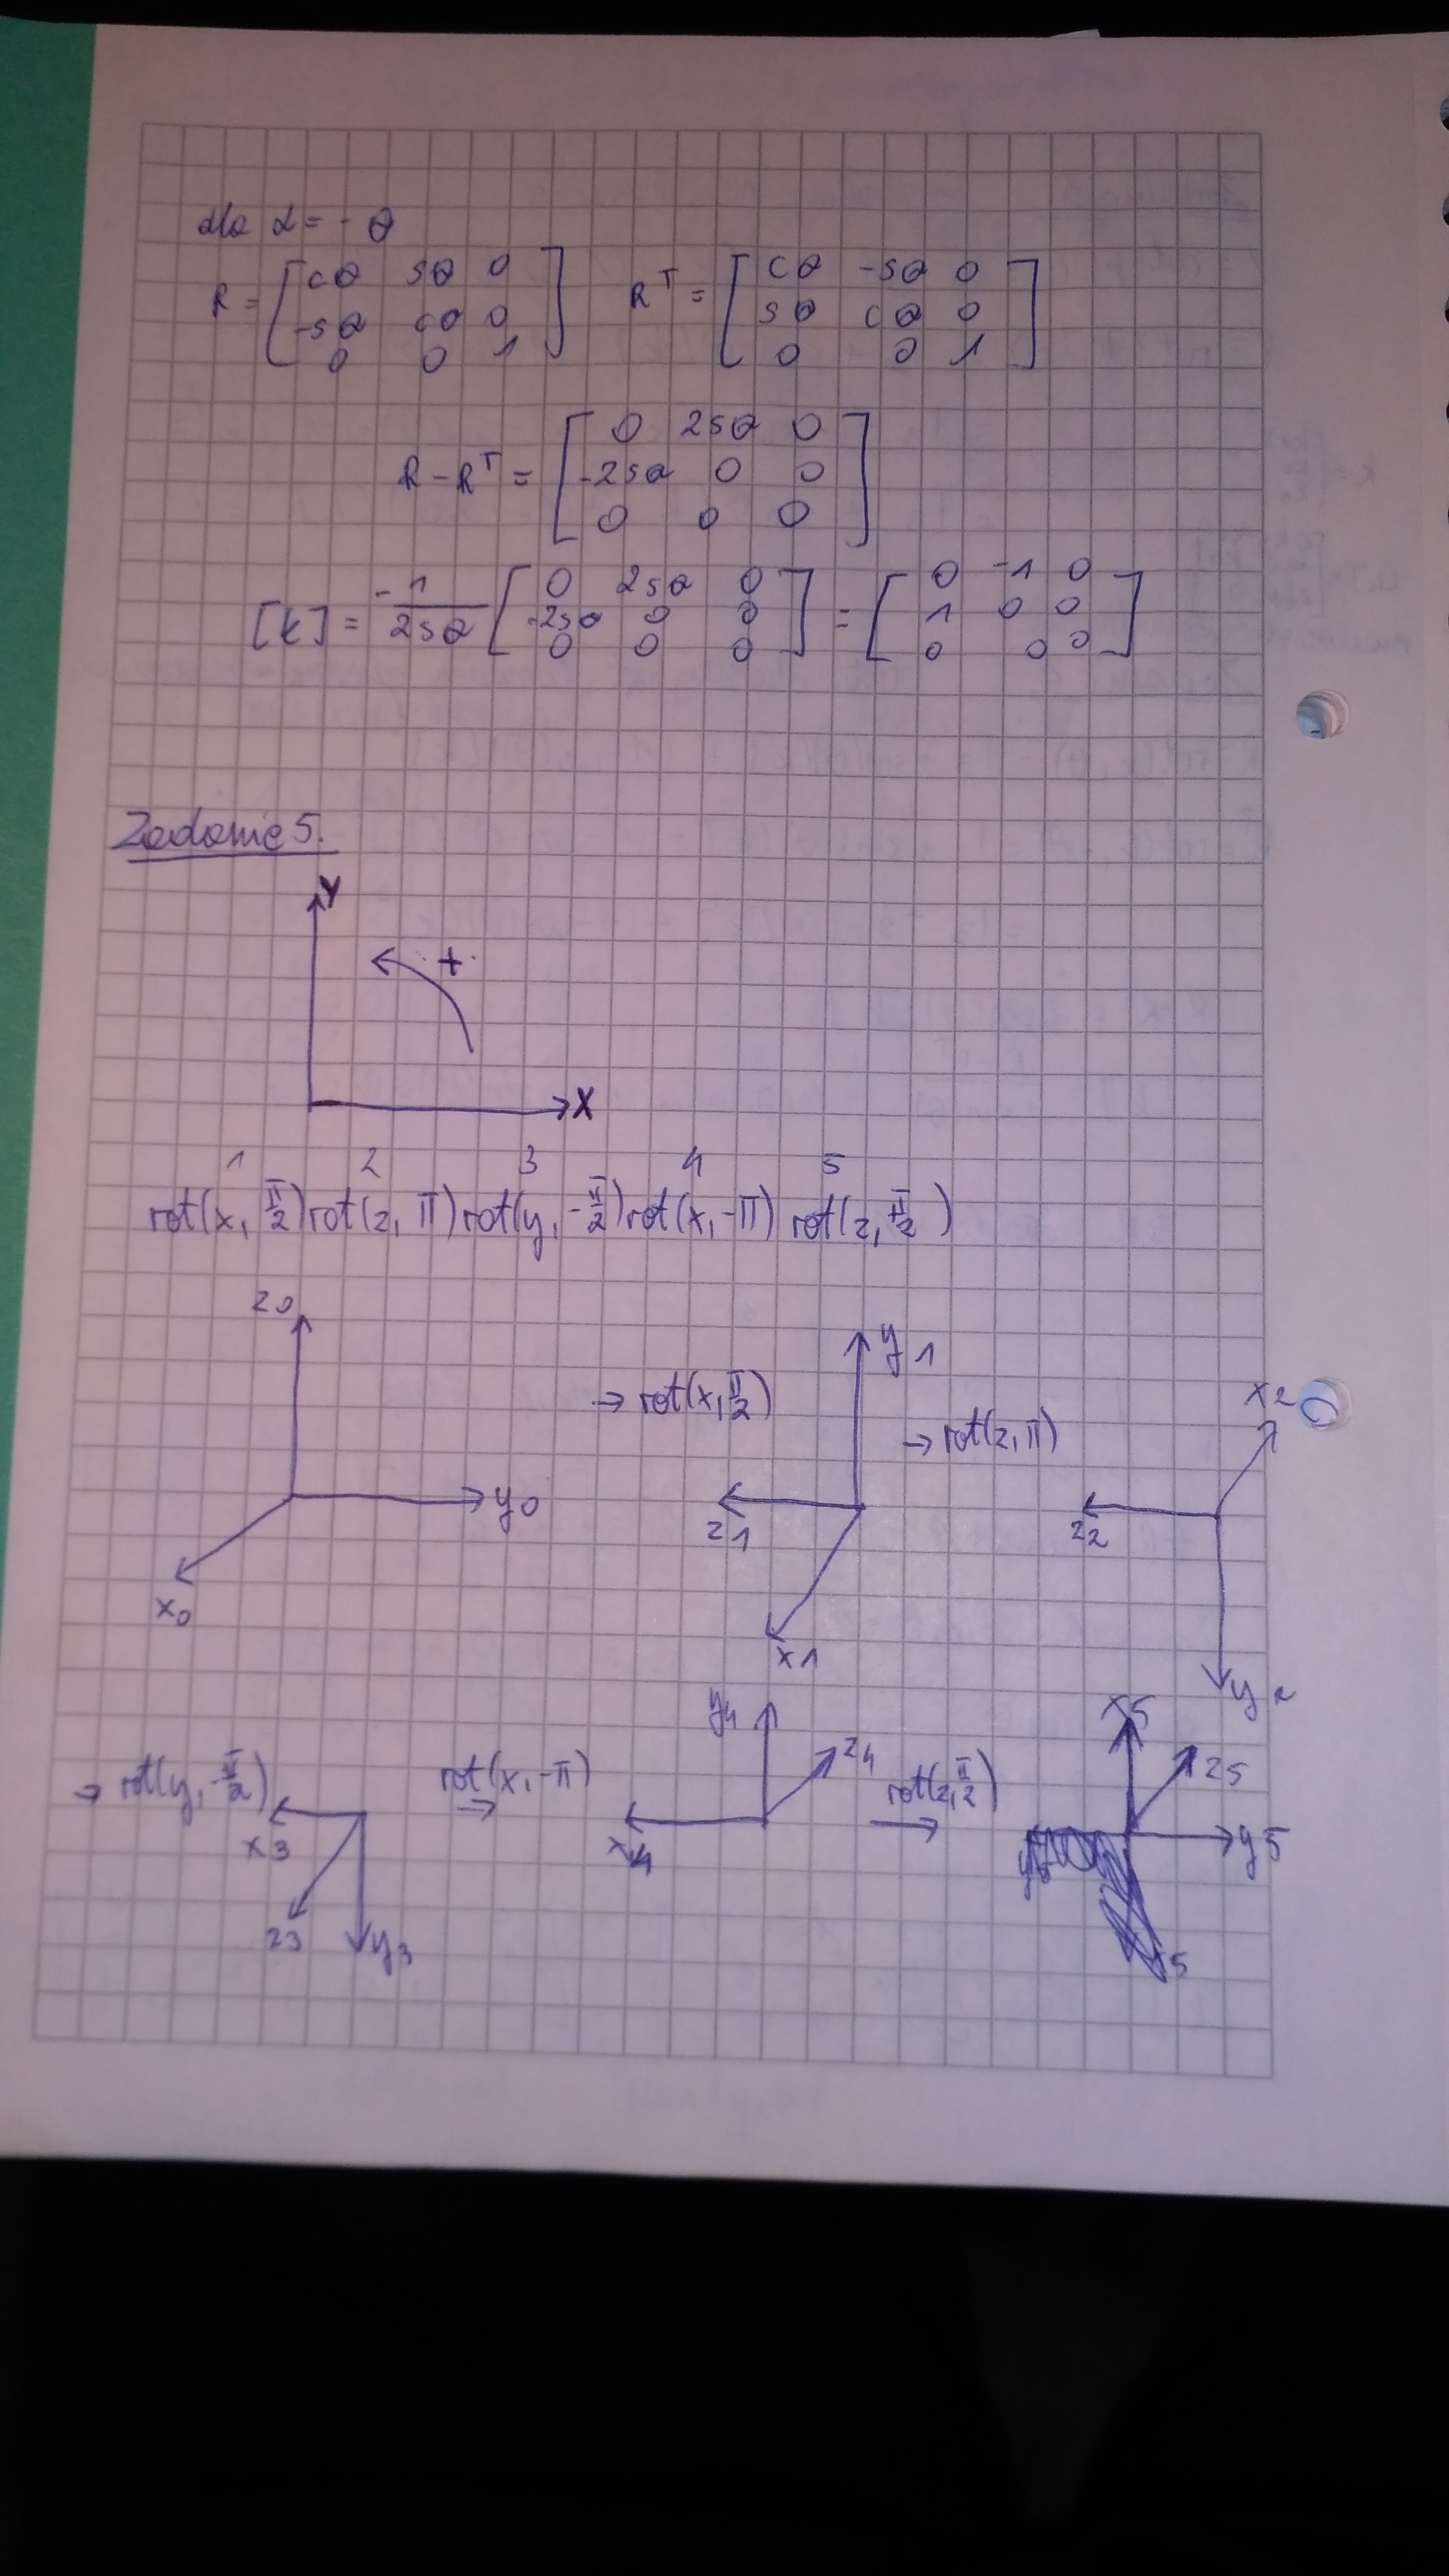 dla α = - θ
R = [cθ sθ 0
-sθ cθ 0
0 0 1]
R^T = [cθ -sθ 0
sθ cθ 0
0 0 1]
R - R^T = [0 2sθ 0
-2sθ 0 0
0 0 0]
[k] = -1/2sθ [0 2sθ 0
-2sθ 0 0
0 0 0] = [0 -1 0
1 0 0
0 0 0]
Zadanie 5.
Y
+
X
1 2 3 4 5
rot(x, π/2) rot(z, π) rot(y, -π/2) rot(x, -π) rot(z, π/2)
z0
y0
x0
→ rot(x, π/2)
y1
z1
x1
→ rot(z, π)
x2
z2
y2
→ rot(y, -π/2)
x3
z3
y3
rot(x, -π)
→
y4
z4
x4
rot(z, π/2)
→
x5
z5
y5